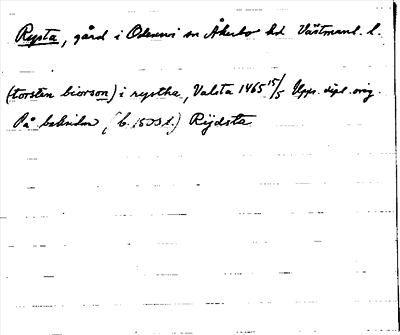 Rysta, gård i Odensvi sn Åkerbo hd Västmanl. l.
(torsten biorson) i rystha, Valsta 1465 15/5 Upps. dipl. orig.
På baksidan, (b. 1500 t.) Rijdsta